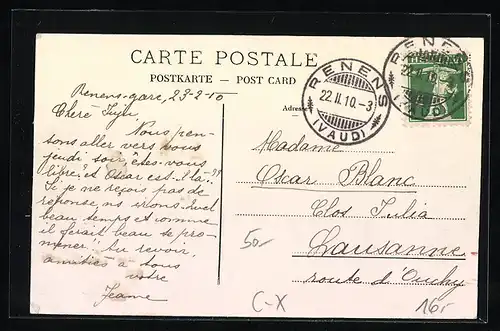 CARTE POSTALE
POSTKARTE — POST CARD
Adresse
RENENS
22.II.10.-3
(VAUD)
RENENS
(VAUD)
Renens-gare, 23-2-10
Nous pen-
sons aller vers vous
jeudi soir, êtes-vous
libre, et Oscar est-il là?
Si je ne reçois pas de
réponse, nous irons. Quel
beau temps et comme
il ferait beau se pro-
mener! Au revoir,
amitiés à tous
votre
Jeanne
Madame
Oscar Blanc
Clos Julia
Lausanne
route d'Ouchy
50-
C-X
16.-